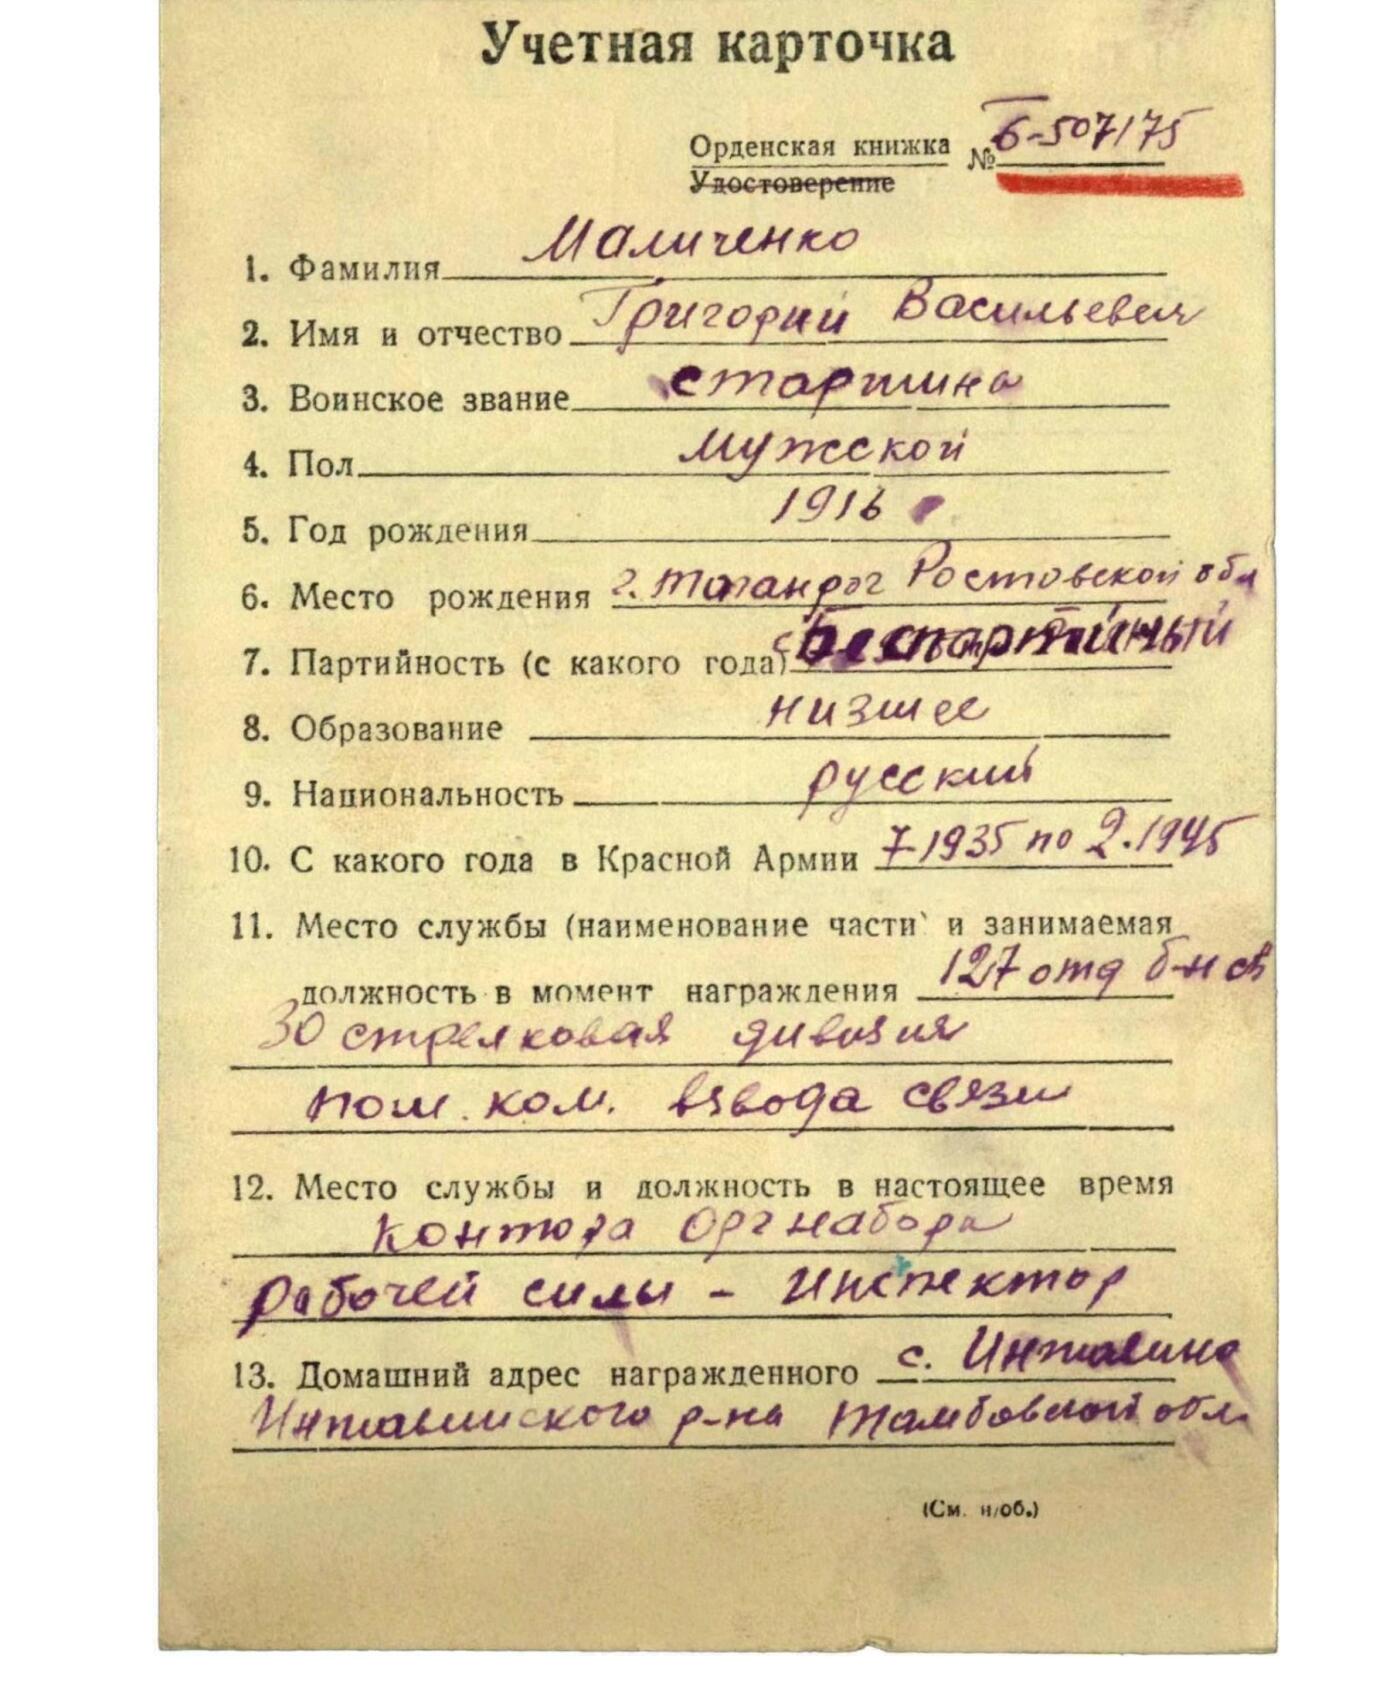 Учетная карточка
Орденская книжка № Б-507175
Удостоверение
1. Фамилия Маличенко
2. Имя и отчество Григорий Васильевич
3. Воинское звание старшина
4. Пол мужской
5. Год рождения 1916
6. Место рождения г. Таганрог Ростовской обл
7. Партийность (с какого года) Беспартийный
8. Образование низшее
9. Национальность русский
10. С какого года в Красной Армии 7-1935 по 2.1945
11. Место службы (наименование части и занимаемая
должность в момент награждения 127 отд б-н св
30 стрелковая дивизия
пом. ком. взвода связи
12. Место службы и должность в настоящее время
контора Оргнабора
рабочей силы - Инспектор
13. Домашний адрес награжденного с.
р-на Тамбовской обл.
(См. н/об.)